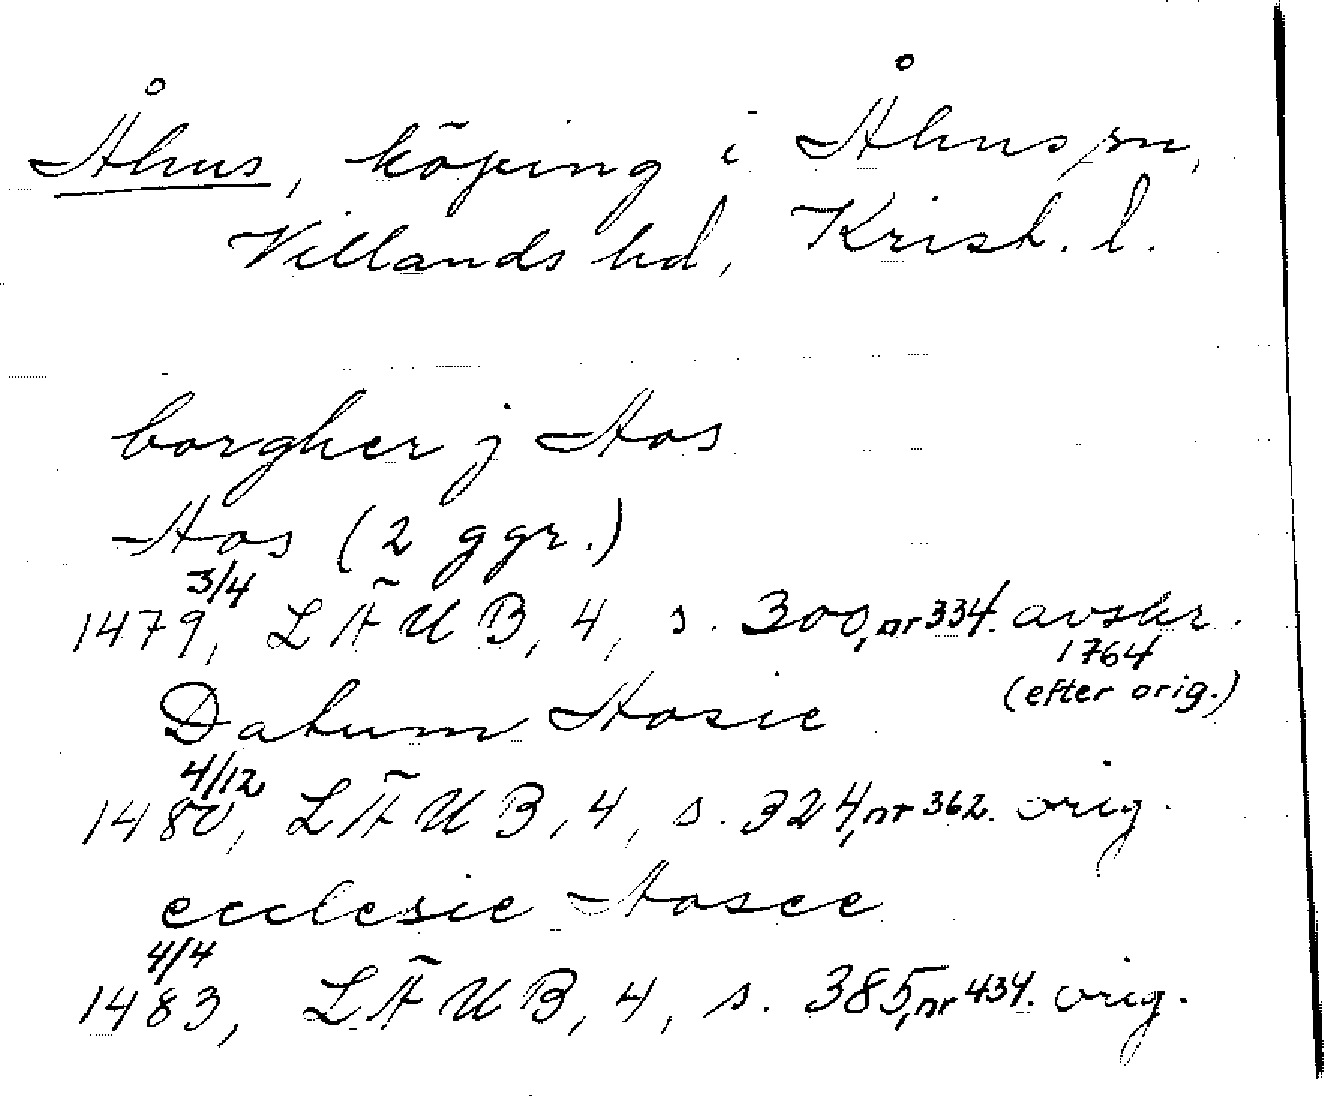 Åhus, köping i Åhus sn,
Villands hd, Krist. l.
borgher j Aos
Aos (2 ggr.)
3/4
1479, LÄUB, 4, s. 300, nr 334. avskr.
1764
(efter orig.)
Datum Aosie
4/12
1480, LÄUB, 4, s. 324, nr 362. orig.
ecclesie Aosee
4/4
1483, LÄUB, 4, s. 385, nr 434. orig.